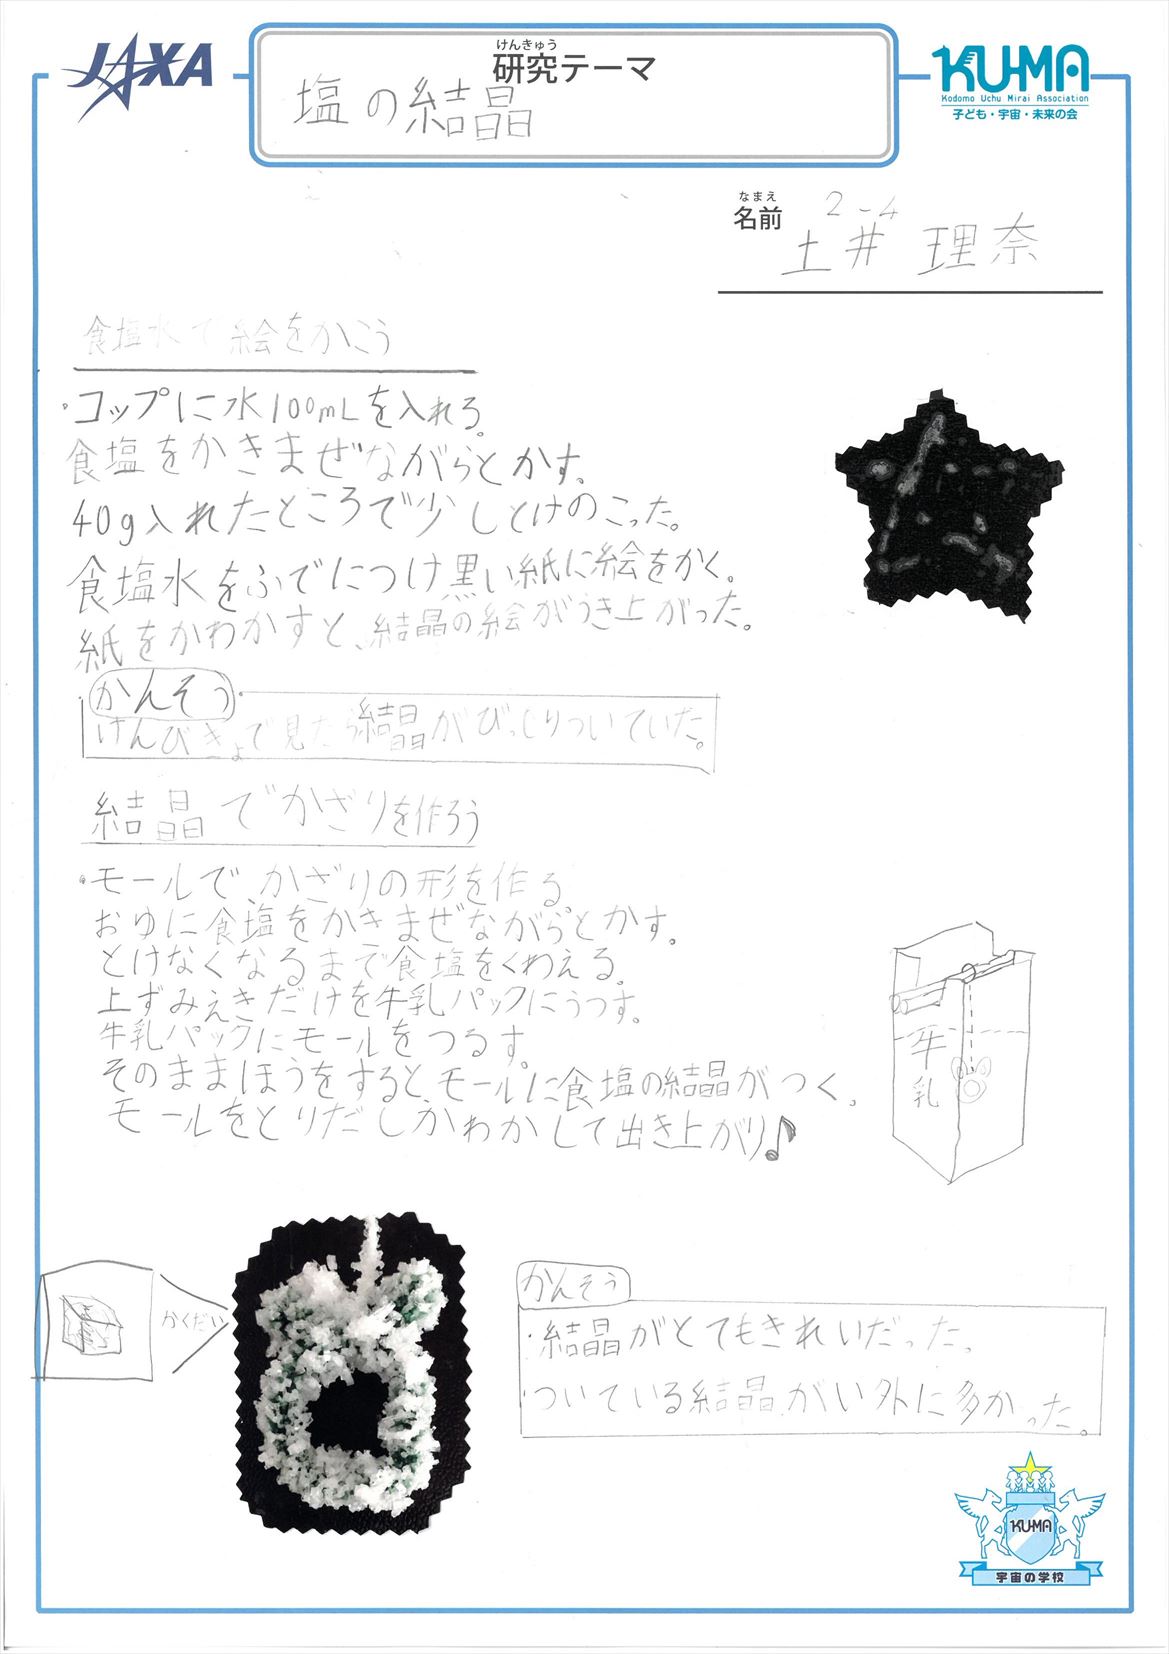 JAXA
けんきゅう
研究テーマ
塩の結晶
KU-MA
Kodomo Uchu Mirai Association
子ども・宇宙・未来の会
なまえ
名前
2-4
土井 理奈
食塩水で絵をかこう
・コップに水100mLを入れる。
食塩をかきまぜながらとかす。
40g入れたところで少しとけのこった。
食塩水をふでにつけ黒い紙に絵をかく。
紙をかわかすと、結晶の絵がうき上がった。
かんそう
けんびきょで見たら結晶がびっしりついていた。
結晶でかざりを作ろう
・モールで、かざりの形を作る
おゆに食塩をかきまぜながらとかす。
とけなくなるまで食塩をくわえる。
上ずみえきだけを牛乳パックにうつす。
牛乳パックにモールをつるす。
そのままほうをすると、モールに食塩の結晶がつく。
モールをとりだしかわかして出き上がり♪
牛乳
かくだい
かんそう
・結晶がとてもきれいだった。
・ついている結晶がい外に多かった。
KU-MA
宇宙の学校